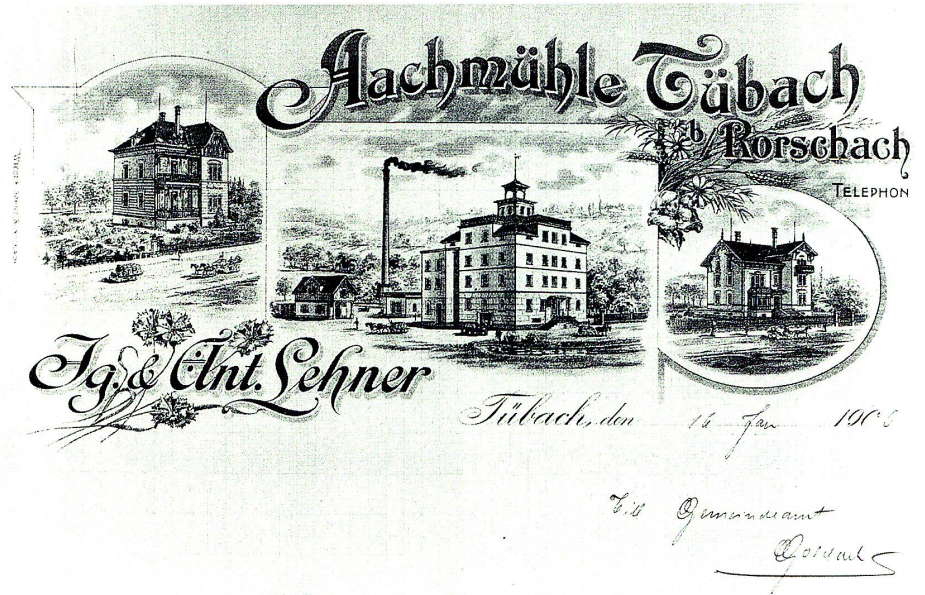 Aachmühle Tübach
b. Rorschach
TELEPHON
Ig. & Ant. Lehner
Tübach, den 16 Jan 1906
Gemeindeamt